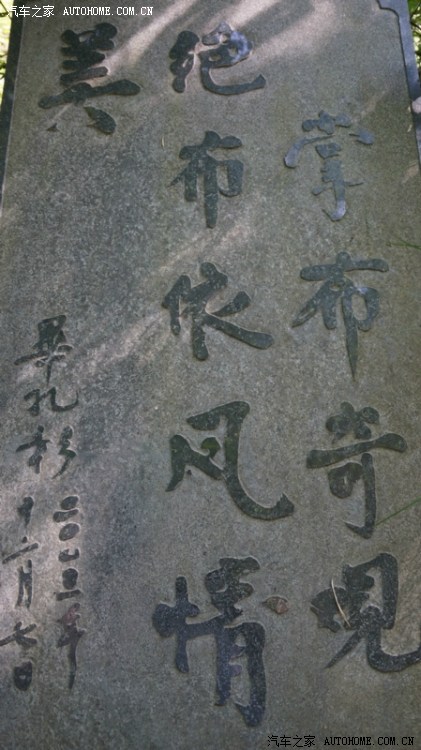 汽车之家 AUTOHOME.COM.CN
掌布奇观
绝布依风情
美
二〇〇三年
十二月七日
汽车之家 AUTOHOME.COM.CN